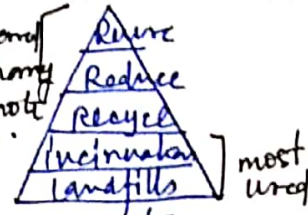 Reuse
Reduce
Recycle
Incineration
Landfills
most
used